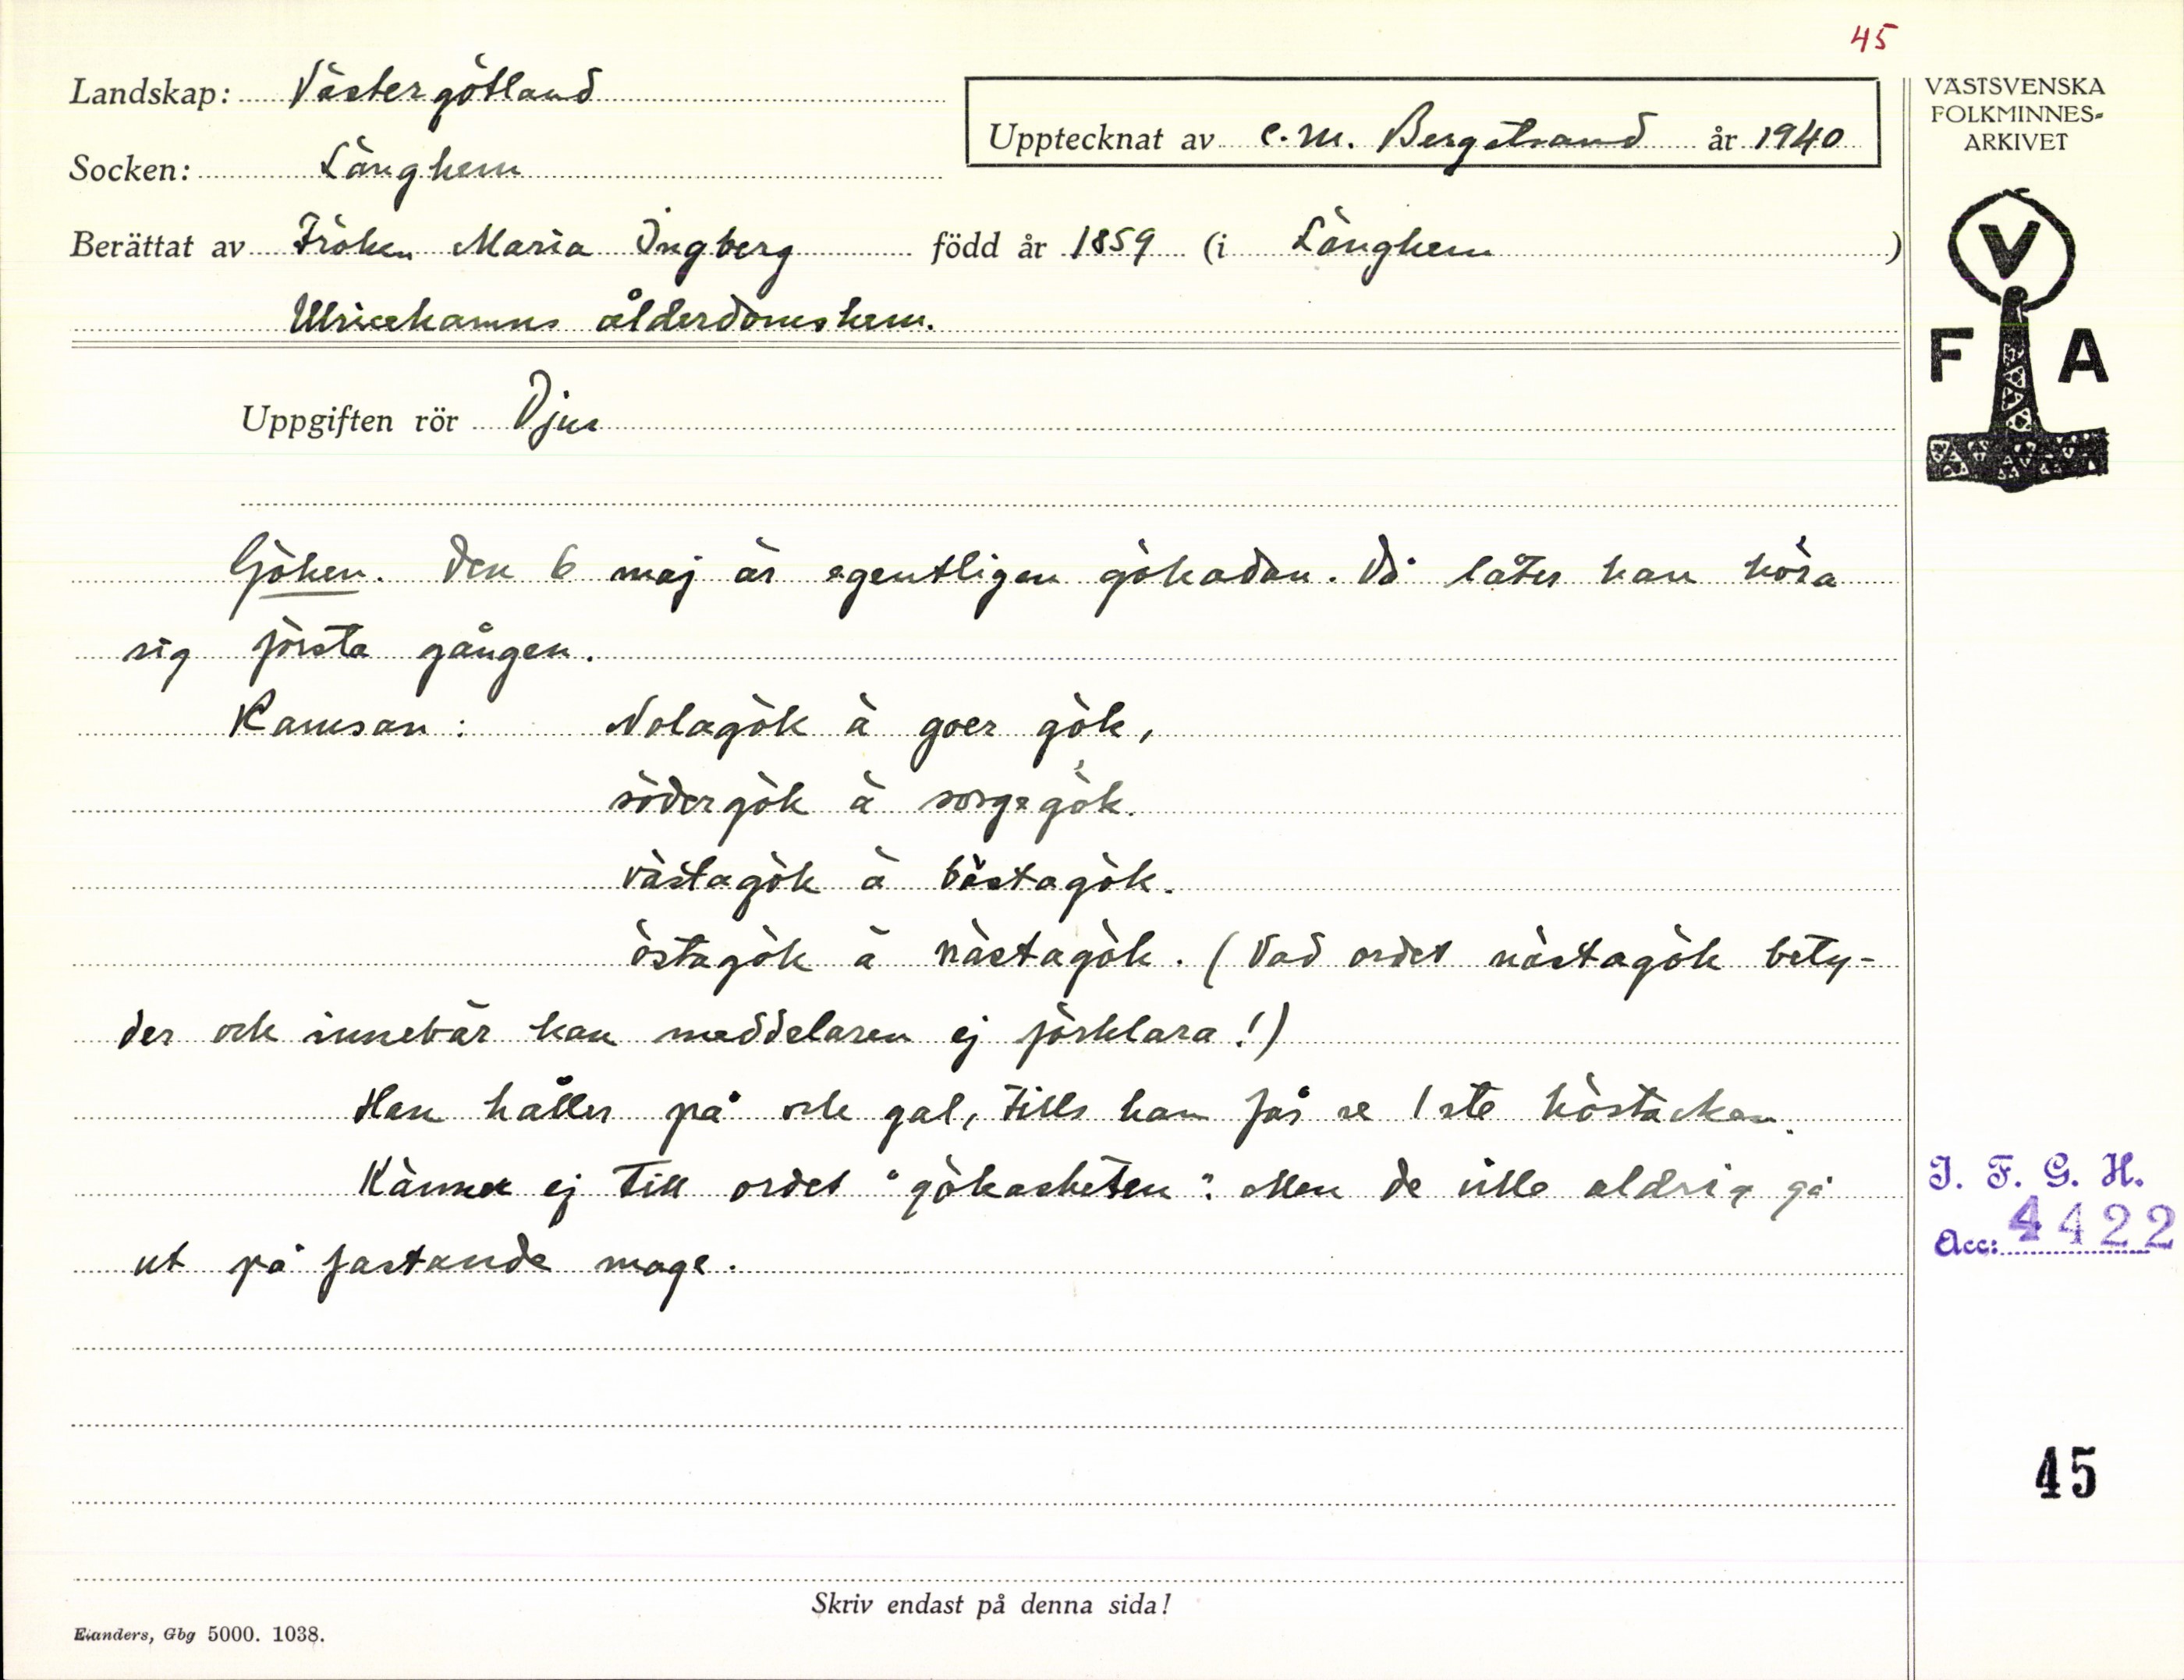 45
Landskap: Västergötland
Upptecknat av C. M. Bergstrand år 1940
Socken: Länghem
Berättat av Fröken Maria Ingberg född år 1859 (i Länghem )
Ulricehamns ålderdomshem.
Uppgiften rör Djur
Göken. Den 6 maj är egentligen gökadan. Då låter han höra
sig första gången.
Ramsan: Nolagök ä goer gök,
södergök ä sorgegök.
västagök ä bästagök.
östagök ä nästagök. (Vad ordet nästagök bety-
der och innebär kan meddelaren ej förklara!)
Han håller på och gal, tills han får se 1 ste höstacken.
Känner ej till ordet "gökasketen". Men de ville aldrig gå
ut på fastande mage.
Skriv endast på denna sida!
Elanders, Gbg 5000. 1038.
VÄSTSVENSKA
FOLKMINNES-
ARKIVET
V
F A
I. F. G. H.
Acc: 4422
45